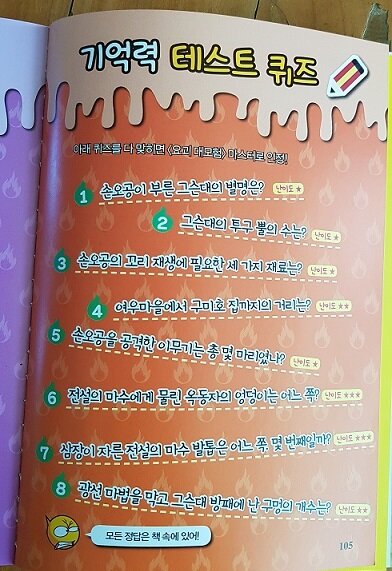 기억력 테스트 퀴즈
아래 퀴즈를 다 맞히면 <요괴 대모험> 마스터로 인정!
1 손오공이 부른 그슨대의 별명은? 난이도 ★
2 그슨대의 투구 뿔의 수는? 난이도 ★
3 손오공의 꼬리 재생에 필요한 세 가지 재료는? 난이도 ★
4 여우마을에서 구미호 집까지의 거리는? 난이도 ★★
5 손오공을 공격한 이무기는 총 몇 마리였나? 난이도 ★
6 전설의 마수에게 물린 옥동자의 엉덩이는 어느 쪽? 난이도 ★★★
7 심장이 자른 전설의 마수 발톱은 어느 쪽 몇 번째일까? 난이도 ★★★
8 광선 마법을 막고 그슨대 방패에 난 구멍의 개수는? 난이도 ★★
모든 정답은 책 속에 있어!
105